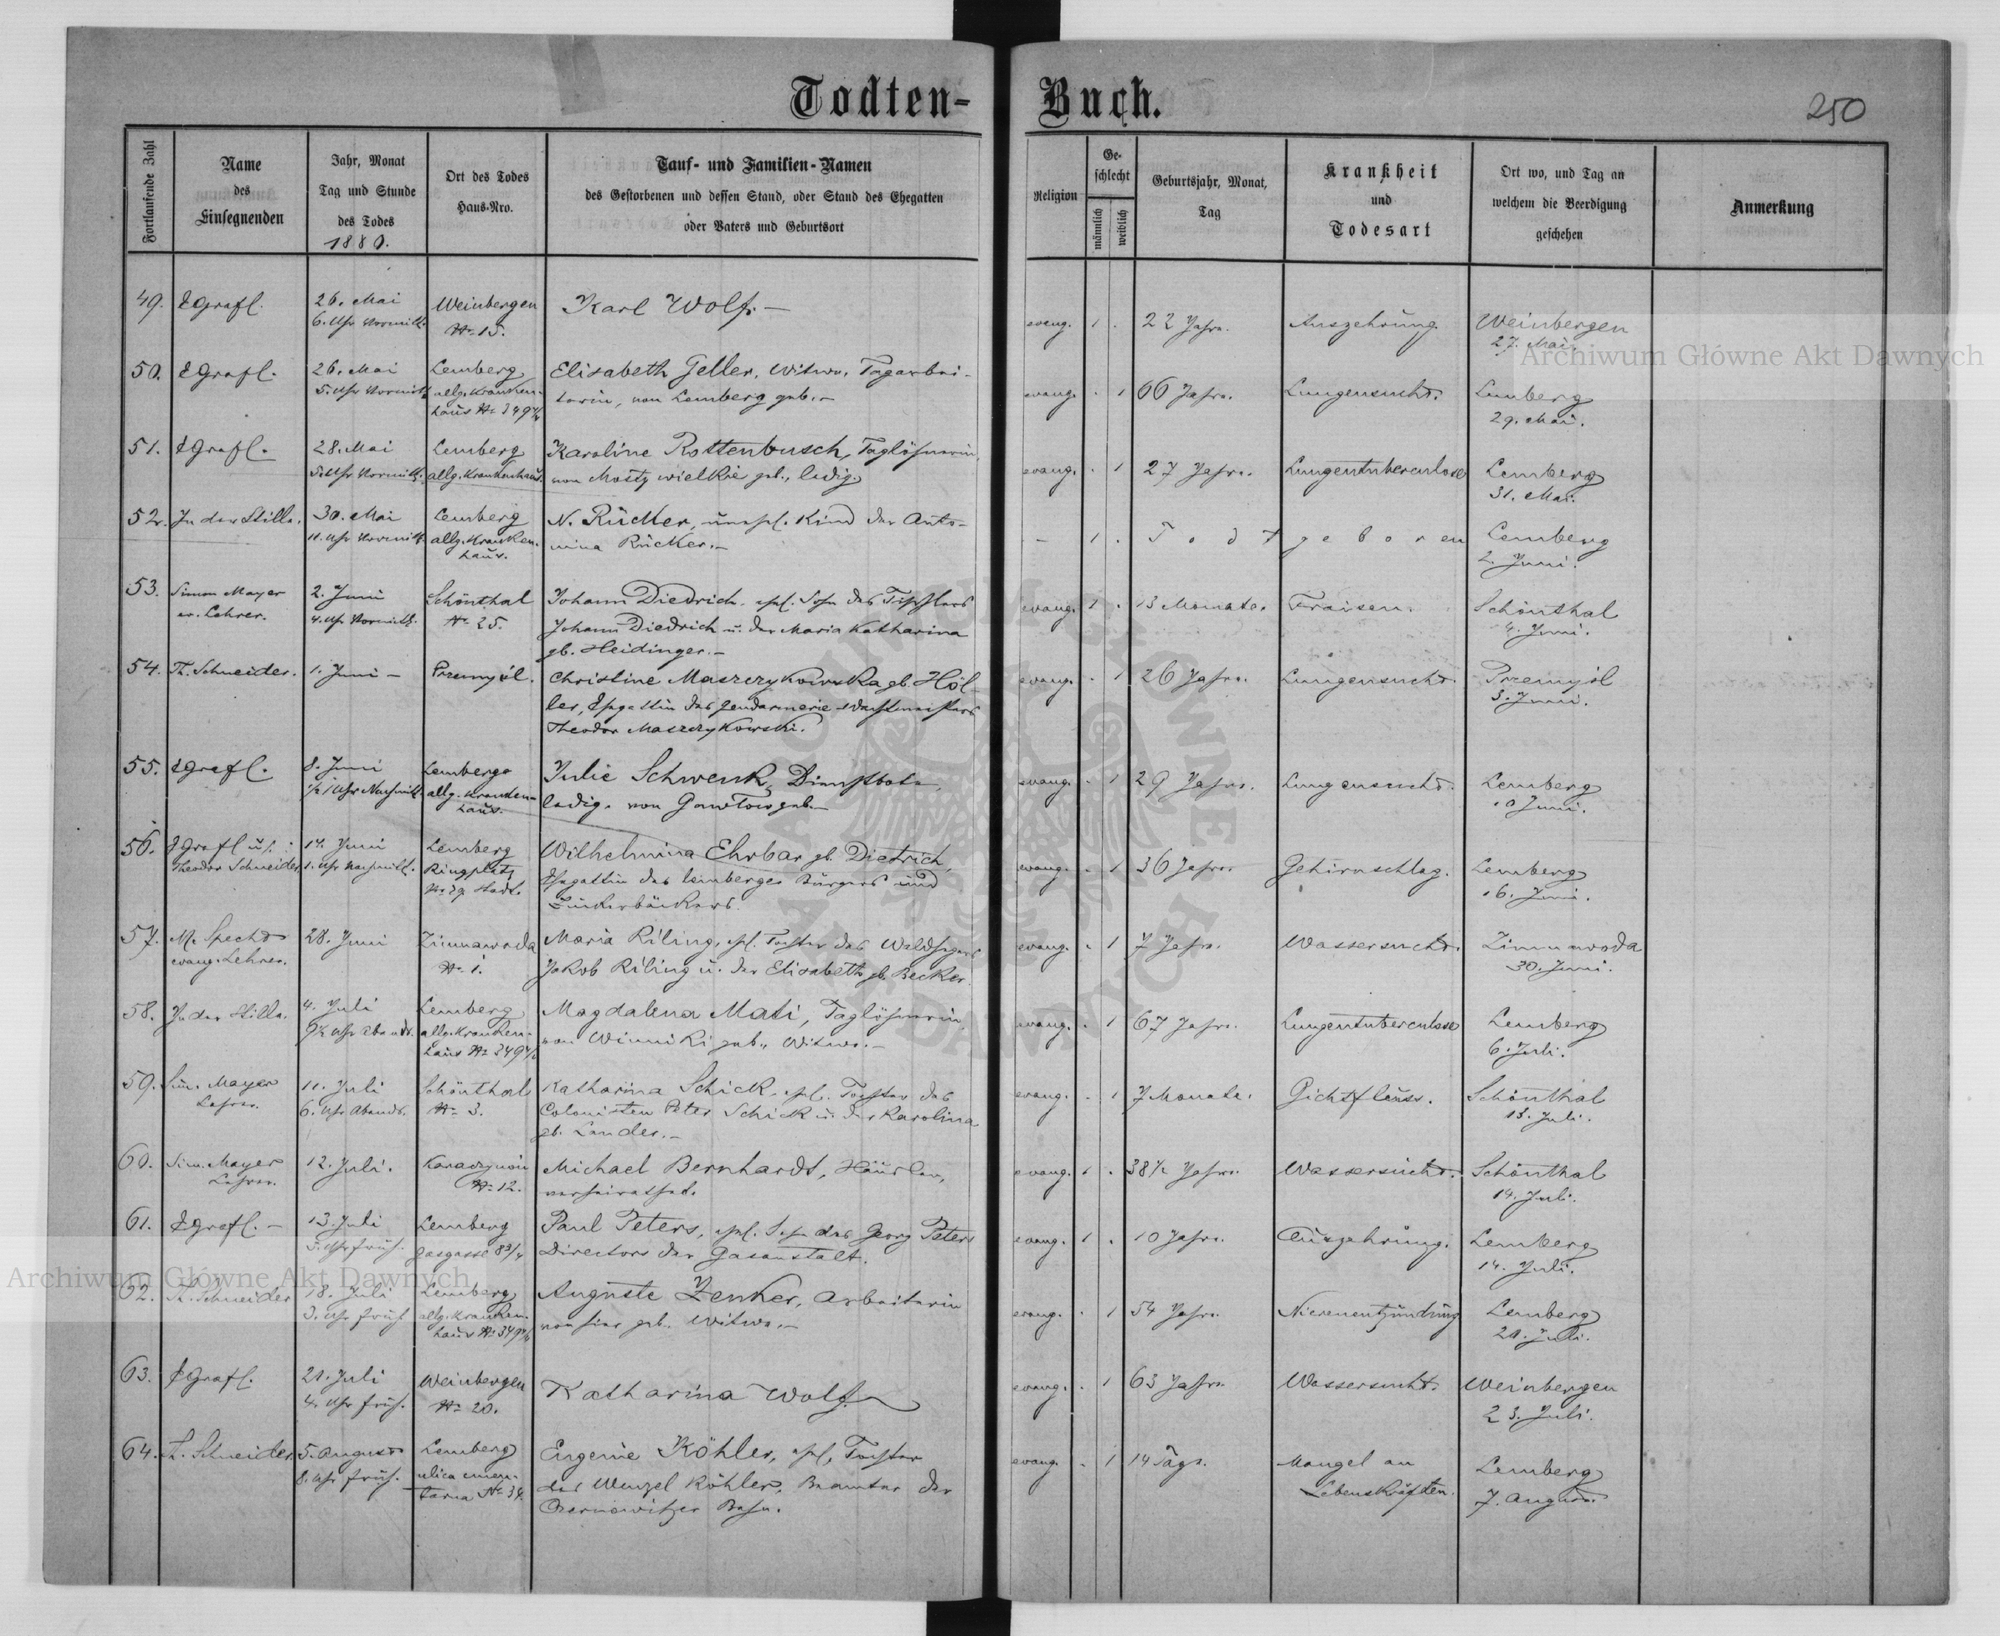 Todten-Buch.
250
Fortlaufende Zahl
Name
des
Einsegnenden
Jahr, Monat
Tag und Stunde
des Todes
1880.
Ort des Todes
Haus-Nro.
Tauf- und Familien-Namen
des Gestorbenen und dessen Stand, oder Stand des Ehegatten
oder Vaters und Geburtsort
Religion
Ge-
schlecht
männlich
weiblich
Geburtsjahr, Monat,
Tag
Krankheit
und
Todesart
Ort wo, und Tag an
welchem die Beerdigung
geschehen
Anmerkung
49. EGrafl. 26. Mai Weinbergen Karl Wolf. evang. 1 . 22 Jahre. Auszehrung. Weinbergen
6. Uhr Vormitt. No 15. 27. Mai.
50. EGrafl. 26. Mai Lemberg Elisabeth Geller, Witwe, Tagarbei- evang. . 1 66 Jahre. Lungensucht. Lemberg
5. Uhr Vormitt. allg. Kranken- terin, von Lemberg geb. 29. Mai.
haus No 349 4/4
51. EGrafl. 28. Mai Lemberg Karoline Rottenbusch, Taglöhnerin, evang. . 1 27 Jahre. Lungentuberculose Lemberg
5. Uhr Vormitt. allg. Krankenhaus. von Mosty wielkie geb., ledig. 31. Mai.
52. In der Stille. 30. Mai Lemberg N. Rücker, unehel. Kind der Anto- – 1 . Todtgeboren Lemberg
11. Uhr Vormitt. allg. Kranken- nina Rücker. 2. Juni.
haus.
53. Simon Mayer 2. Juni Schönthal Johann Diedrich, ehel. Sohn des Tischlers evang. 1 . 13 Monate. Fraisen. Schönthal
ev. Lehrer. 4. Uhr Vormitt. No 25. Johann Diedrich u. der Maria Katharina 4. Juni.
gb. Heidinger.
54. Th. Schneider. 1. Juni – Przemyśl. Christine Maszczykowska gb. Höl- evang. . 1 26 Jahre. Lungensucht. Przemyśl
ler, Ehgattin des Gendarmerie-Wachtmeisters 3. Juni.
Theodor Maszczykowski.
55. EGrafl. 8. Juni Lemberg Julie Schwenk, Dienstbote, evang. . 1 29 Jahre. Lungensucht. Lemberg
1/2 1 Uhr Nachmitt. allg. Kranken- ledig, von geb. 10 Juni.
haus.
56. EGrafl u. 14. Juni Lemberg Wilhelmina Ehrbar gb. Dietrich, evang. . 1 36 Jahre. Gehirnschlag. Lemberg
Theodor Schneider 1. Uhr Nachmitt. Ringplatz Ehegattin des Lemberger Bürgers und 16. Juni.
No 29 Stadt. Zuckerbäckers.
57. M. Specht 28. Juni Zimnawoda Maria Riling, ehel. Tochter des Waldhegers evang. . 1 7 Jahre. Wassersucht. Zimnawoda
evang. Lehrer. No 1. Jakob Riling u. der Elisabeth gb. Becker. 30. Juni.
58. In der Stille. 4. Juli Lemberg Magdalena Mati, Taglöhnerin, evang. . 1 67 Jahre. Lungentuberculose Lemberg
Uhr Abends. allg. Kranken- von Winniki geb., Witwe. 6. Juli.
haus No 349 4/4
59. Sim. Mayer 11. Juli Schönthal Katharina Schick, ehel. Tochter des evang. . 1 7 Monate. Gichtfluss. Schönthal
Lehrer. 6. Uhr Abends. No 3. Colonisten Peter Schick u. der Karolina 13. Juli.
gb. Lander.
60. Sim. Mayer 12. Juli. Karaczynów Michael Bernhardt, Häusler, evang. 1 . 38 1/2 Jahre. Wassersucht. Schönthal
Lehrer. No 12. verheirathet. 14. Juli.
61. EGrafl. – 13. Juli Lemberg Paul Peters, ehel. Sohn des Georg Peters evang. 1 . 10 Jahre. Auszehrung. Lemberg
5. Uhr früh. Gasgasse 8 3/4 Directors der Gasanstalt. 14. Juli.
62. Th. Schneider 18. Juli Lemberg Auguste Zenker, Arbeiterin evang. . 1 54 Jahre. Nierenentzündung Lemberg
3. Uhr früh allg. Kranken- von hier geb. Witwe. 20. Juli.
haus No 349 4/4
63. EGrafl. 21. Juli Weinbergen Katharina Wolf. evang. . 1 63 Jahre. Wassersucht. Weinbergen
4. Uhr früh. No 20. 23. Juli.
64. T. Schneider 5. August Lemberg Eugenie Köhler, ehel. Tochter evang. . 1 14 Tage. Mangel an Lemberg
8. Uhr früh. ulica cmen- des Wenzel Köhler, Beamter der Lebenskräften. 7. August.
tarna No 34. Czernowitzer Bahn.
Archiwum Główne Akt Dawnych
Archiwum Główne Akt Dawnych
ARCHIWUM GŁÓWNE AKT DAWNYCH